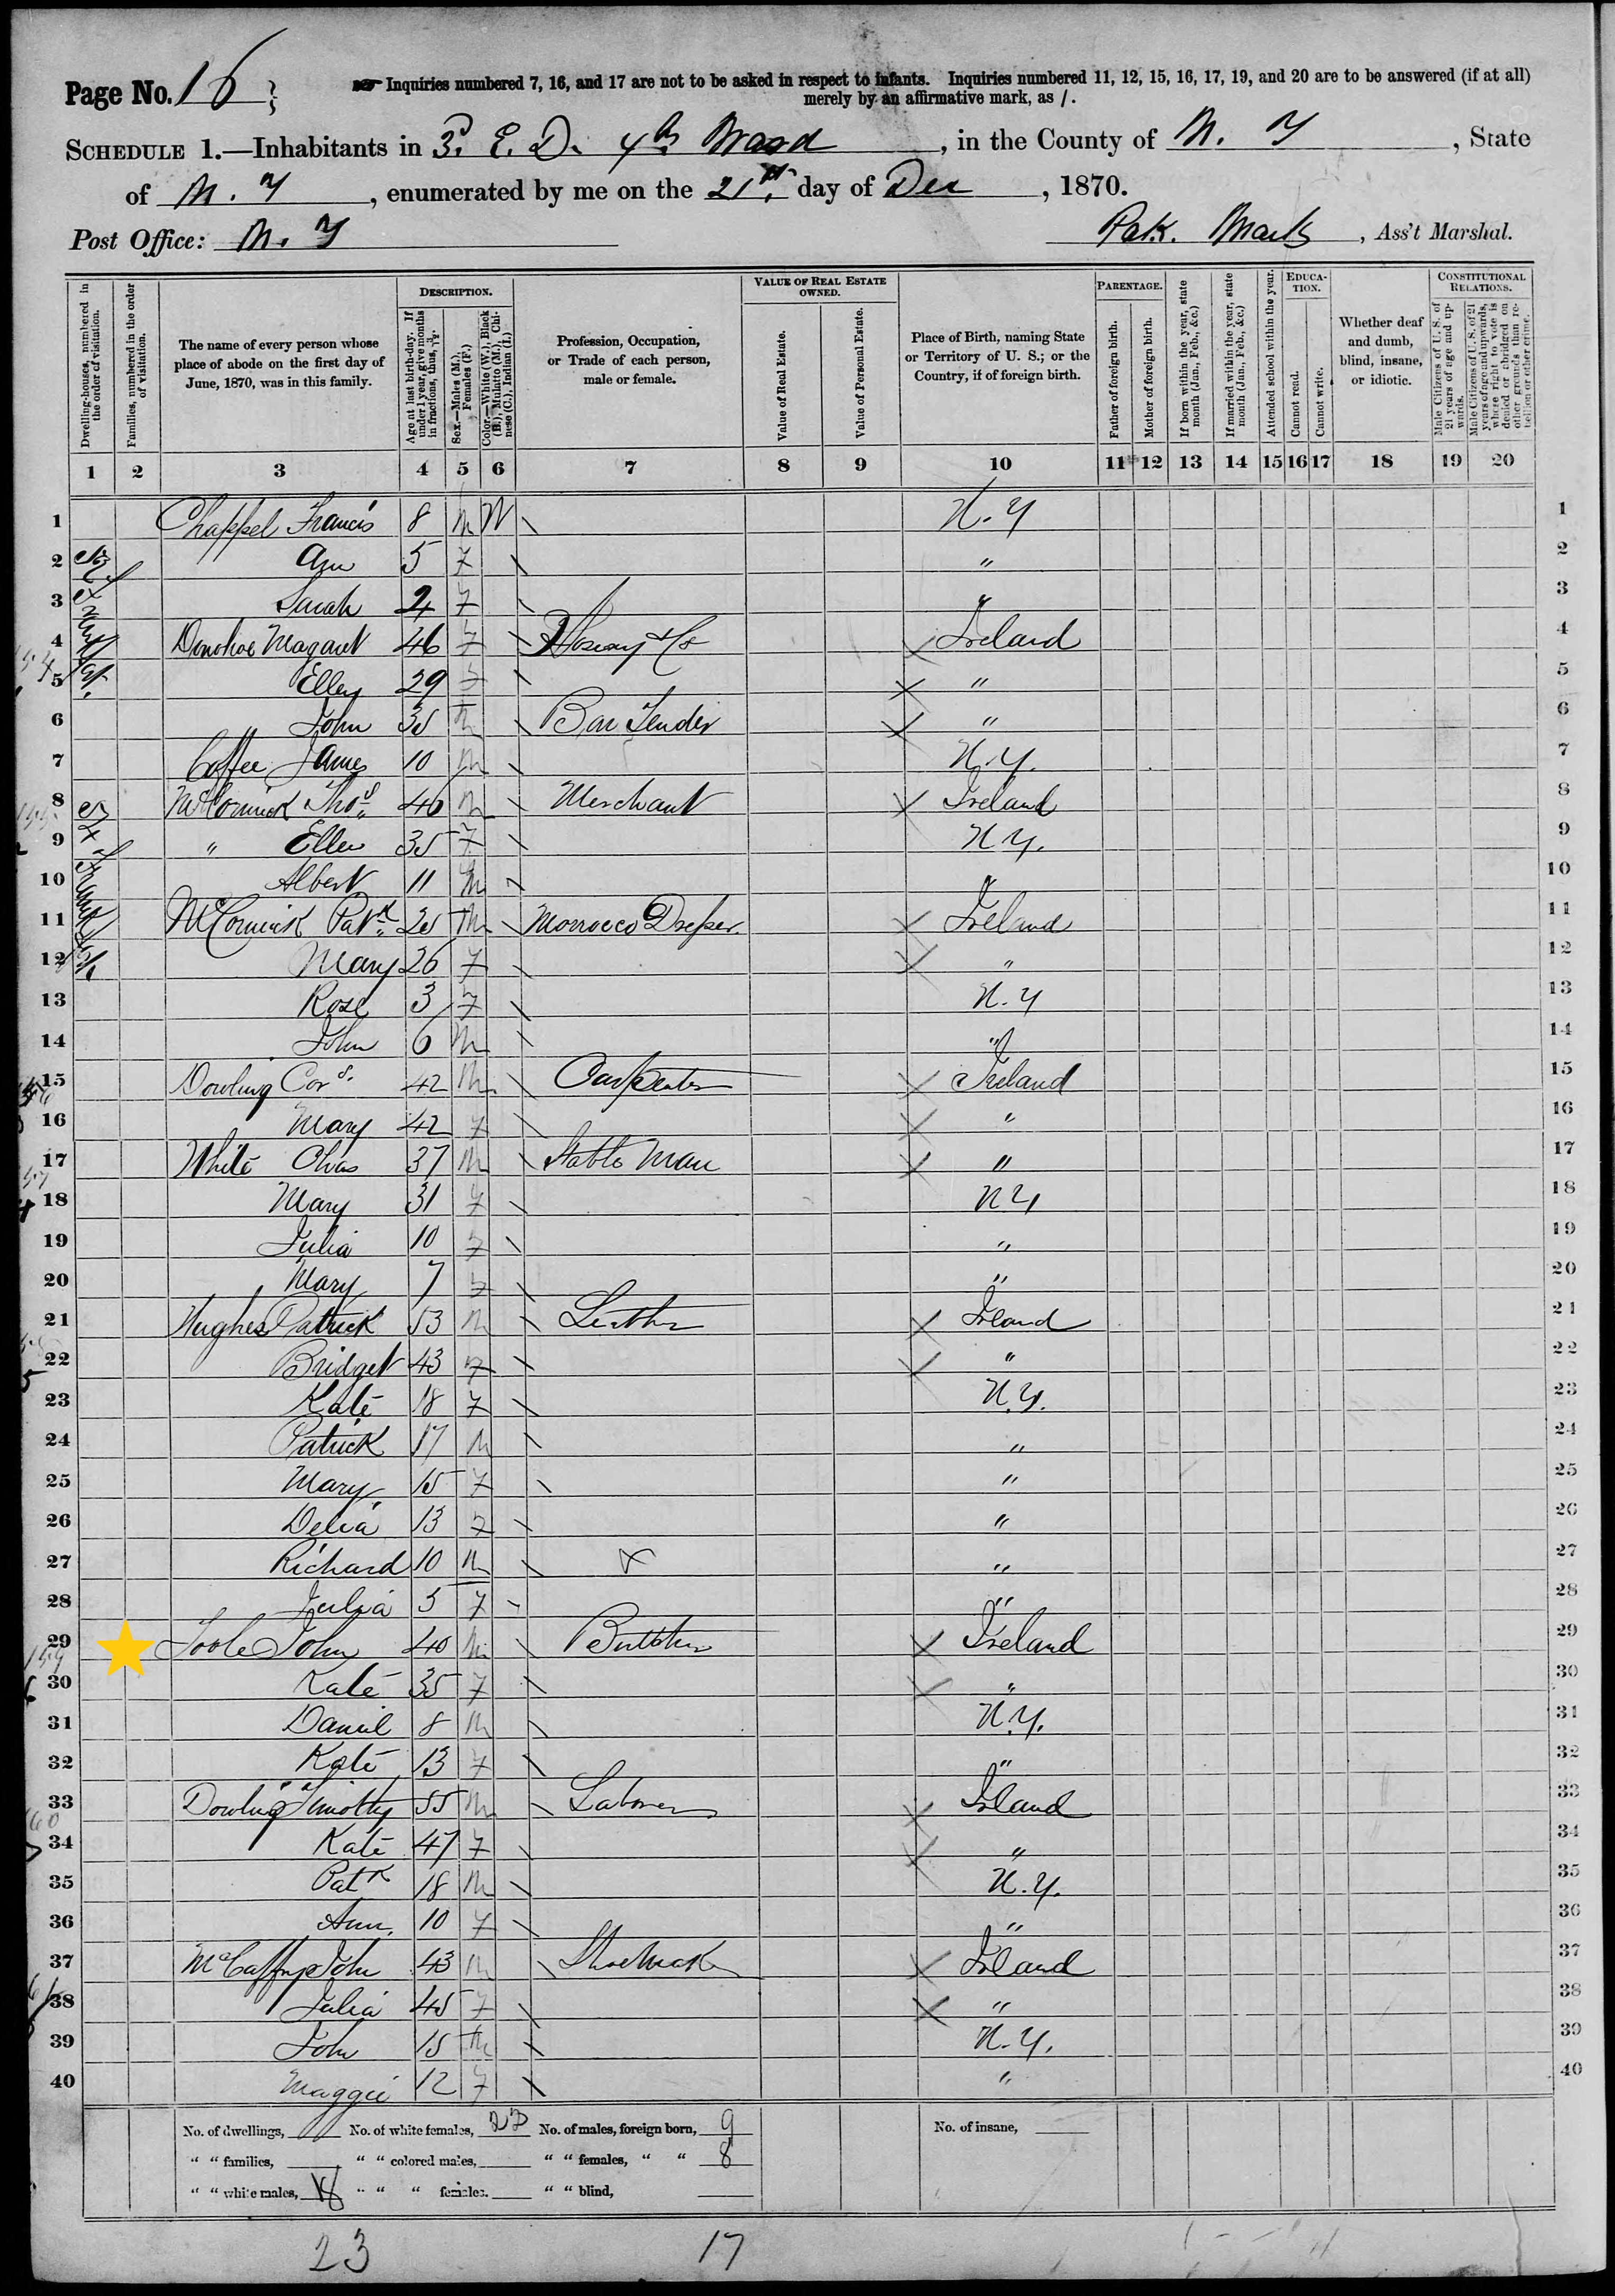 Page No. 16
Inquiries numbered 7, 16, and 17 are not to be asked in respect to infants. Inquiries numbered 11, 12, 15, 16, 17, 19, and 20 are to be answered (if at all)
merely by an affirmative mark, as /.
SCHEDULE 1.—Inhabitants in 3d. E. D. 4th Ward, in the County of N. Y, State
of N. Y, enumerated by me on the 21st. day of Dec, 1870.
Post Office: N. Y Pat.k., Ass't Marshal.
Dwelling-houses, numbered in the order of visitation.
Families, numbered in the order of visitation.
The name of every person whose place of abode on the first day of June, 1870, was in this family.
DESCRIPTION.
Age at last birth-day. If under 1 year, give months in fractions, thus, 3/12.
Sex.—Males (M.), Females (F.)
Color.—White (W.), Black (B.), Mulatto (M.), Chinese (C.), Indian (I.)
Profession, Occupation, or Trade of each person, male or female.
VALUE OF REAL ESTATE OWNED.
Value of Real Estate.
Value of Personal Estate.
Place of Birth, naming State or Territory of U. S.; or the Country, if of foreign birth.
PARENTAGE.
Father of foreign birth.
Mother of foreign birth.
If born within the year, state month (Jan., Feb., &c.)
If married within the year, state month (Jan., Feb., &c.)
Attended school within the year.
EDUCATION.
Cannot read.
Cannot write.
Whether deaf and dumb, blind, insane, or idiotic.
CONSTITUTIONAL RELATIONS.
Male Citizens of U. S. of 21 years of age and upwards.
Male Citizens of U. S. of 21 years of age and upwards, where right to vote is denied or abridged on other grounds than rebellion or other crime.
1 2 3 4 5 6 7 8 9 10 11 12 13 14 15 16 17 18 19 20
1 Chappel Francis 8 M W N. Y 1
2 Ann 5 F " 2
3 Sarah 2 F " 3
4 Donohoe Magaret 46 F Ireland 4
5 Ellen 29 F " 5
6 John 35 M Bar Tender " 6
7 Coffee James 10 M N. Y. 7
8 McCormick Thos 46 M Merchant Ireland 8
9 " Ellen 35 F N Y. 9
10 Albert 11 M " 10
11 McCormick Patk 25 M Morrocco Dresser Ireland 11
12 Mary 26 F " 12
13 Rose 3 F N. Y 13
14 John 6 M " 14
15 Dowling Cors. 42 M Carpenter Ireland 15
16 Mary 42 F " 16
17 White Chas 37 M Stable Man " 17
18 Mary 31 F N Y 18
19 Julia 10 F " 19
20 Mary 7 F " 20
21 Hughes Patrick 53 M Leather Irland 21
22 Bridget 43 F " 22
23 Kate 18 F N. Y. 23
24 Patrick 17 M " 24
25 Mary 15 F " 25
26 Delia 13 F " 26
27 Richard 10 M X " 27
28 Julia 5 F " 28
29 Toole John 40 M Butcher Ireland 29
30 Kate 35 F " 30
31 Daniel 8 M N. Y. 31
32 Kate 13 F " 32
33 Dowling Timothy 55 M Laborer Irland 33
34 Kate 47 F " 34
35 Patk 18 M N. Y. 35
36 Ann. 10 F " 36
37 McCaffry John 43 M Shoe Mak Irland 37
38 Julia 45 F " 38
39 John 15 M N. Y. 39
40 Maggie 12 F " 40
No. of dwellings, No. of white females, No. of males, foreign born, 9 No. of insane,
" " families, " " colored males, " " females, " " 8
" " white males, 18 " " " females. " " blind,
23 17